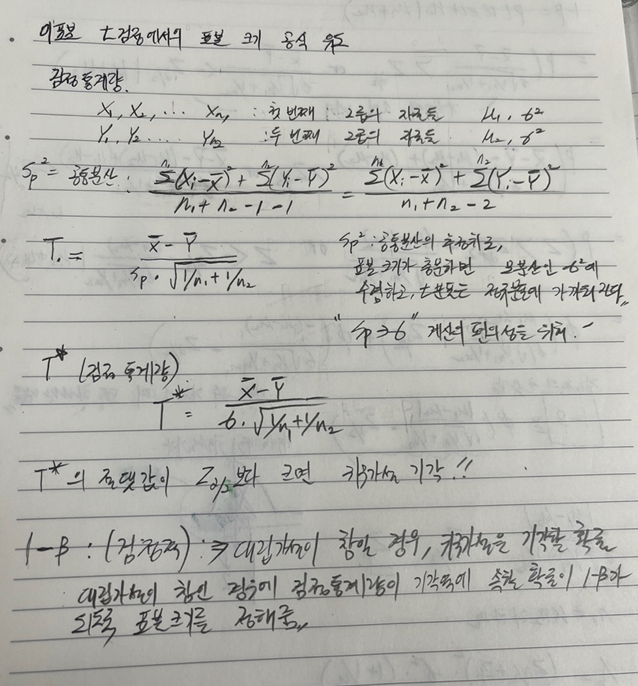 이표본 t검정에서의 표본 크기 공식 유도
검정통계량.
X₁, X₂, ... Xn₁ : 첫 번째 그룹의 자료들 μ₁, σ²
Y₁, Y₂ ... Yn₂ : 두 번째 그룹의 자료들 μ₂, σ²
Sp² = 공통분산 : (Σ(Xi-X̄)² + Σ(Yi-Ȳ)²) / (n₁+n₂-1-1) = (Σ(Xi-X̄)² + Σ(Yi-Ȳ)²) / (n₁+n₂-2)
T. = (X̄-Ȳ) / (Sp·√(1/n₁+1/n₂))
Sp² : 공통분산의 추정치로,
표본 크기가 충분하면 모분산인 σ²에
수렴하고, t분포는 정규분포에 가까워진다.
"Sp⇒σ" 계산의 편의성을 위해.
T* (검정통계량)
T* = (X̄-Ȳ) / (σ·√(1/n₁+1/n₂))
T*의 절댓값이 Zα/2 보다 크면 귀무가설 기각!!
1-β : (검정력) : ⇒ 대립가설이 참일 경우, 귀무가설을 기각할 확률
대립가설이 참인 경우에 검정통계량이 기각역에 속할 확률이 1-β가
되도록 표본크기를 정해줌.,